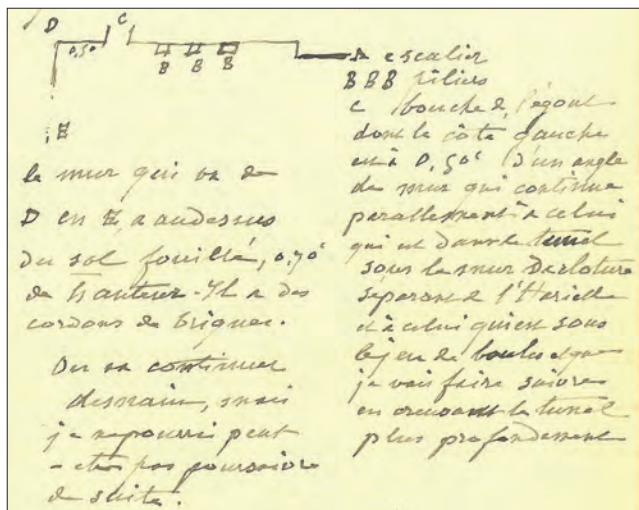 D C
0,50
B B B
A escalier
BBB piliers
C bouche d'égout
dont le côté gauche
est à 0,50c d'un angle
de mur qui continue
parallement à celui
qui est dans le tunel
sous le mur de cloture
séparant de l'
et à celui qui est sous
le jeu de boules que
je vais faire suivre
en creusant le tunel
plus profondement
E
le mur qui va de
D en E, a au dessus
du sol fouillé, 0,70c
de hauteur. Il a des
cordons de briques.
On va continuer
demain, mais
je ne pourrai peut
-etre pas poursuivre
de suite.